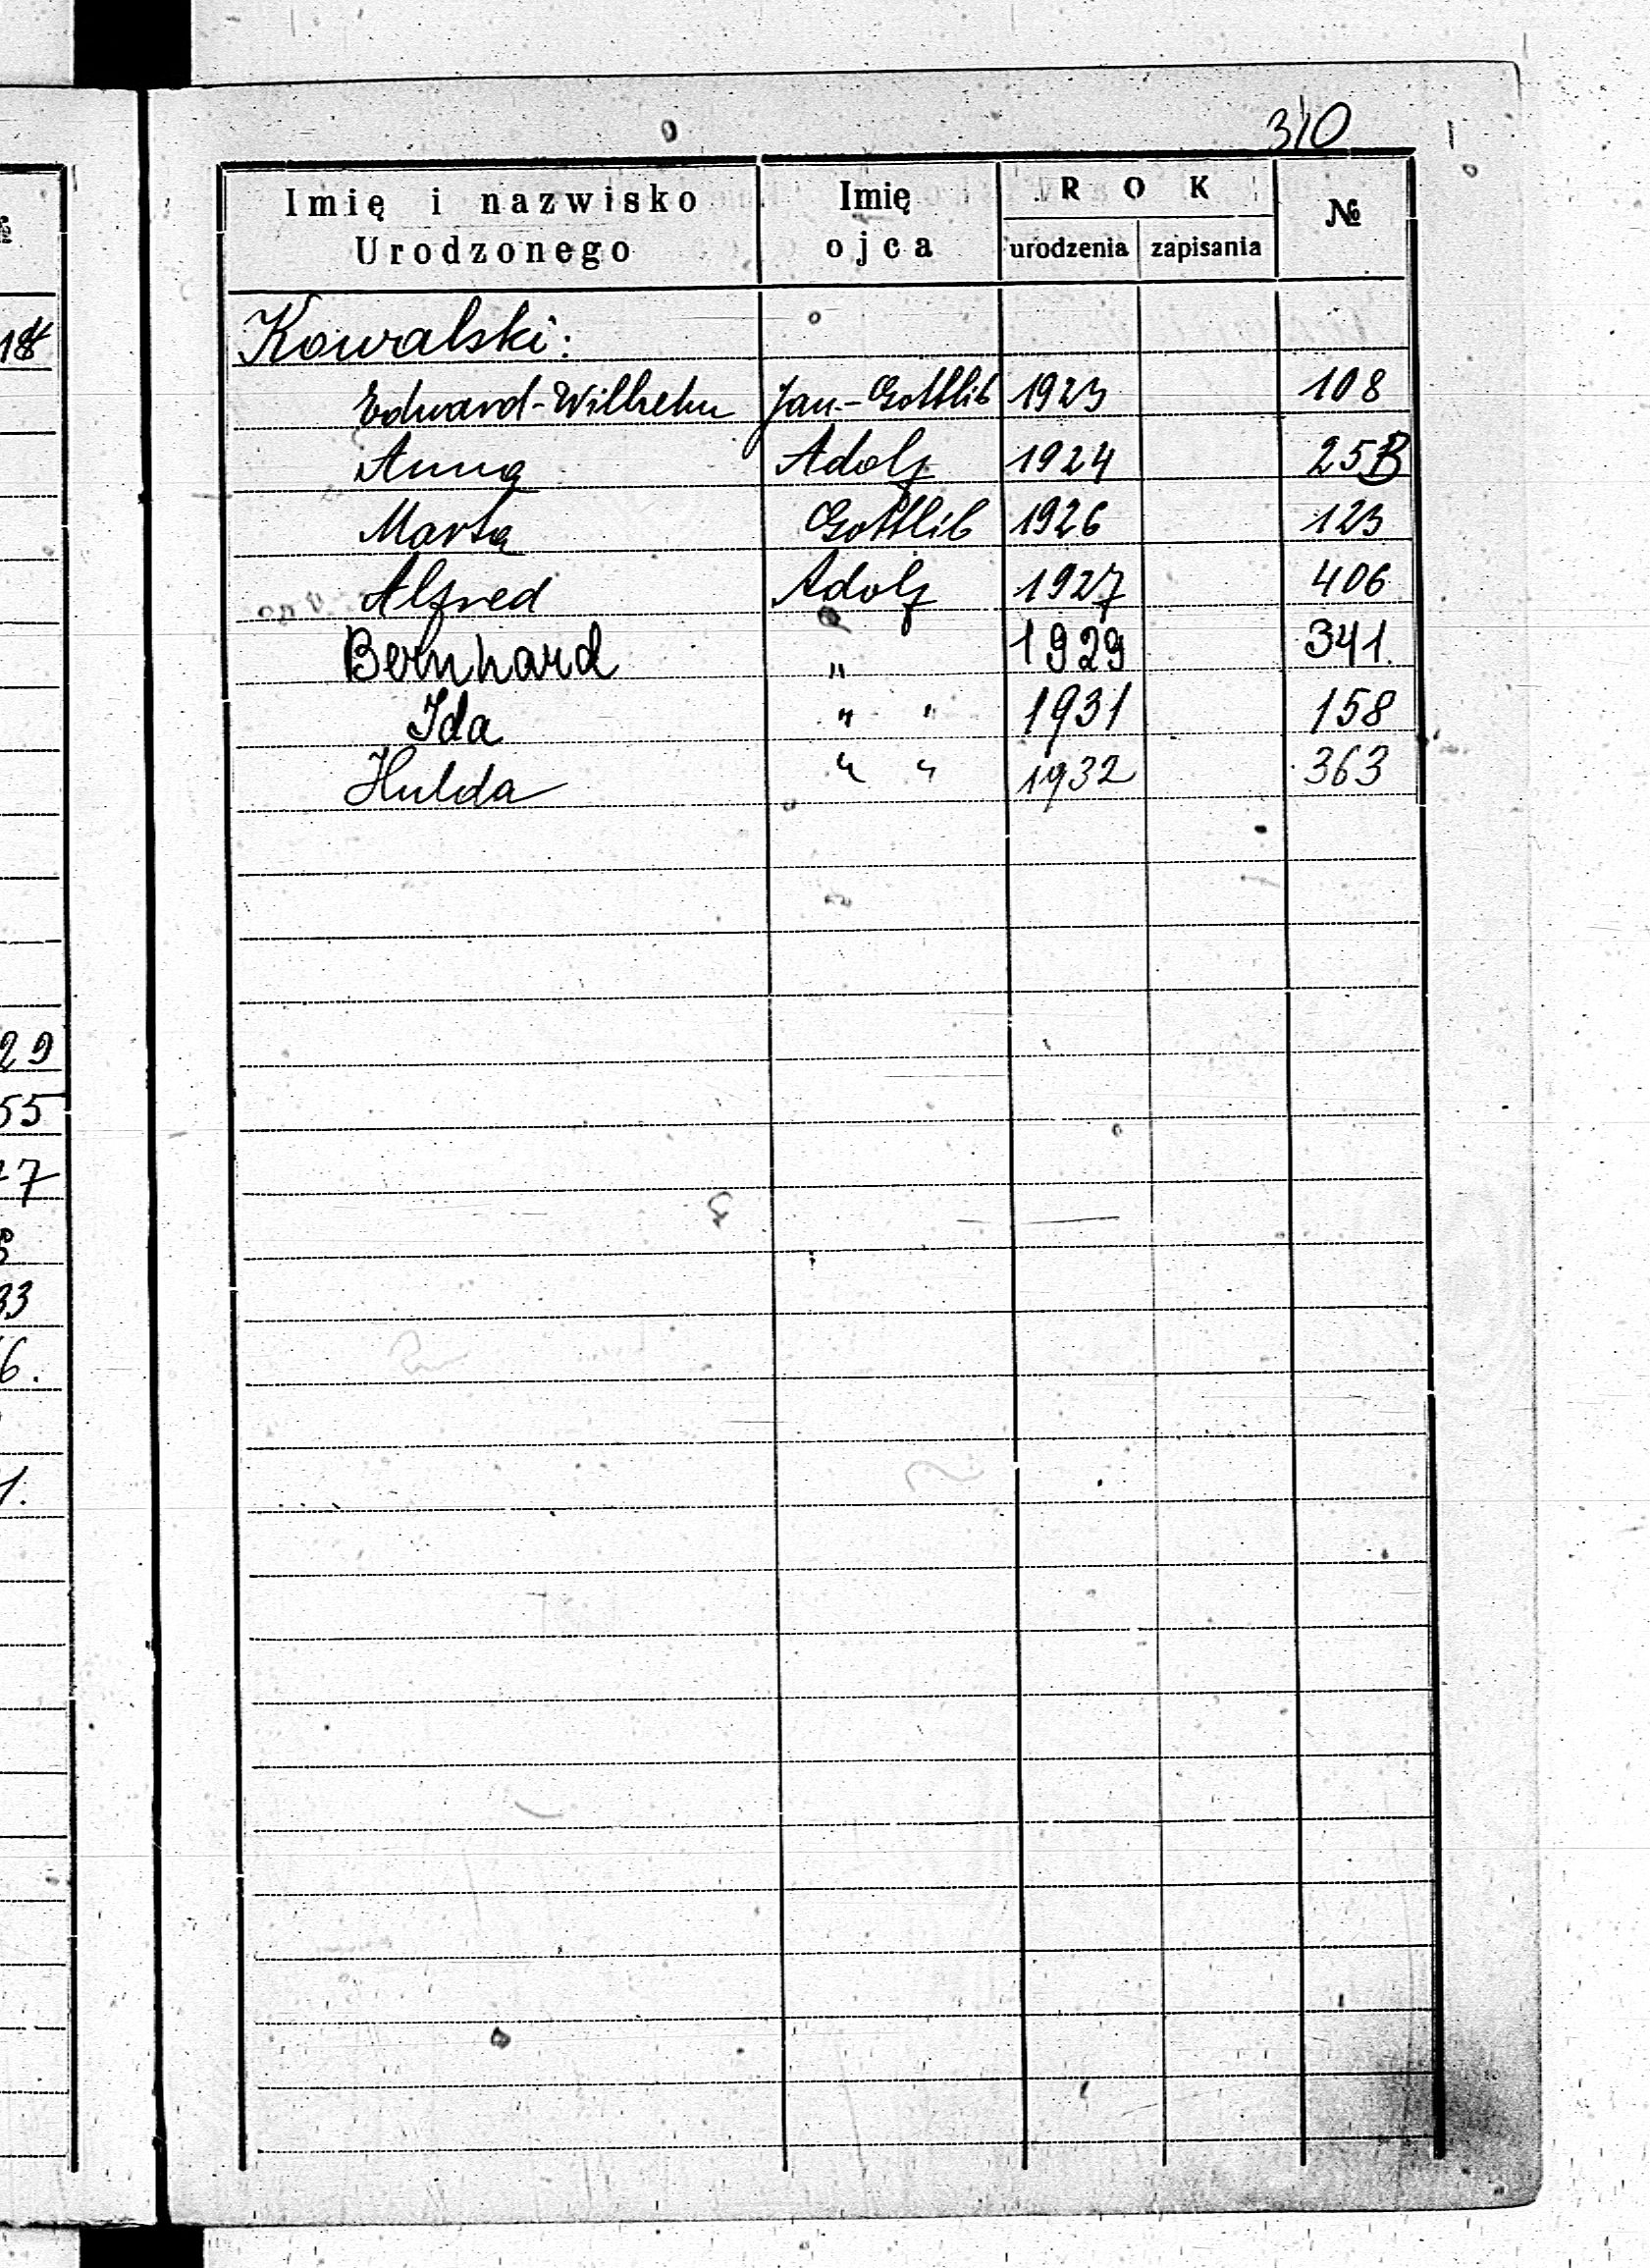 310
Imię i nazwisko Urodzonego Imię ojca ROK urodzenia zapisania №
Kowalski:
Edward-Wilhelm Jan-Gottlib 1923 108
Anna Adolf 1924 25B
Marta Gottlib 1926 123
Alfred Adolf 1927 406
Bernhard " 1929 341.
Ida " " 1931 158
Hulda " " 1932 363
29
55
7
33
6.
1.